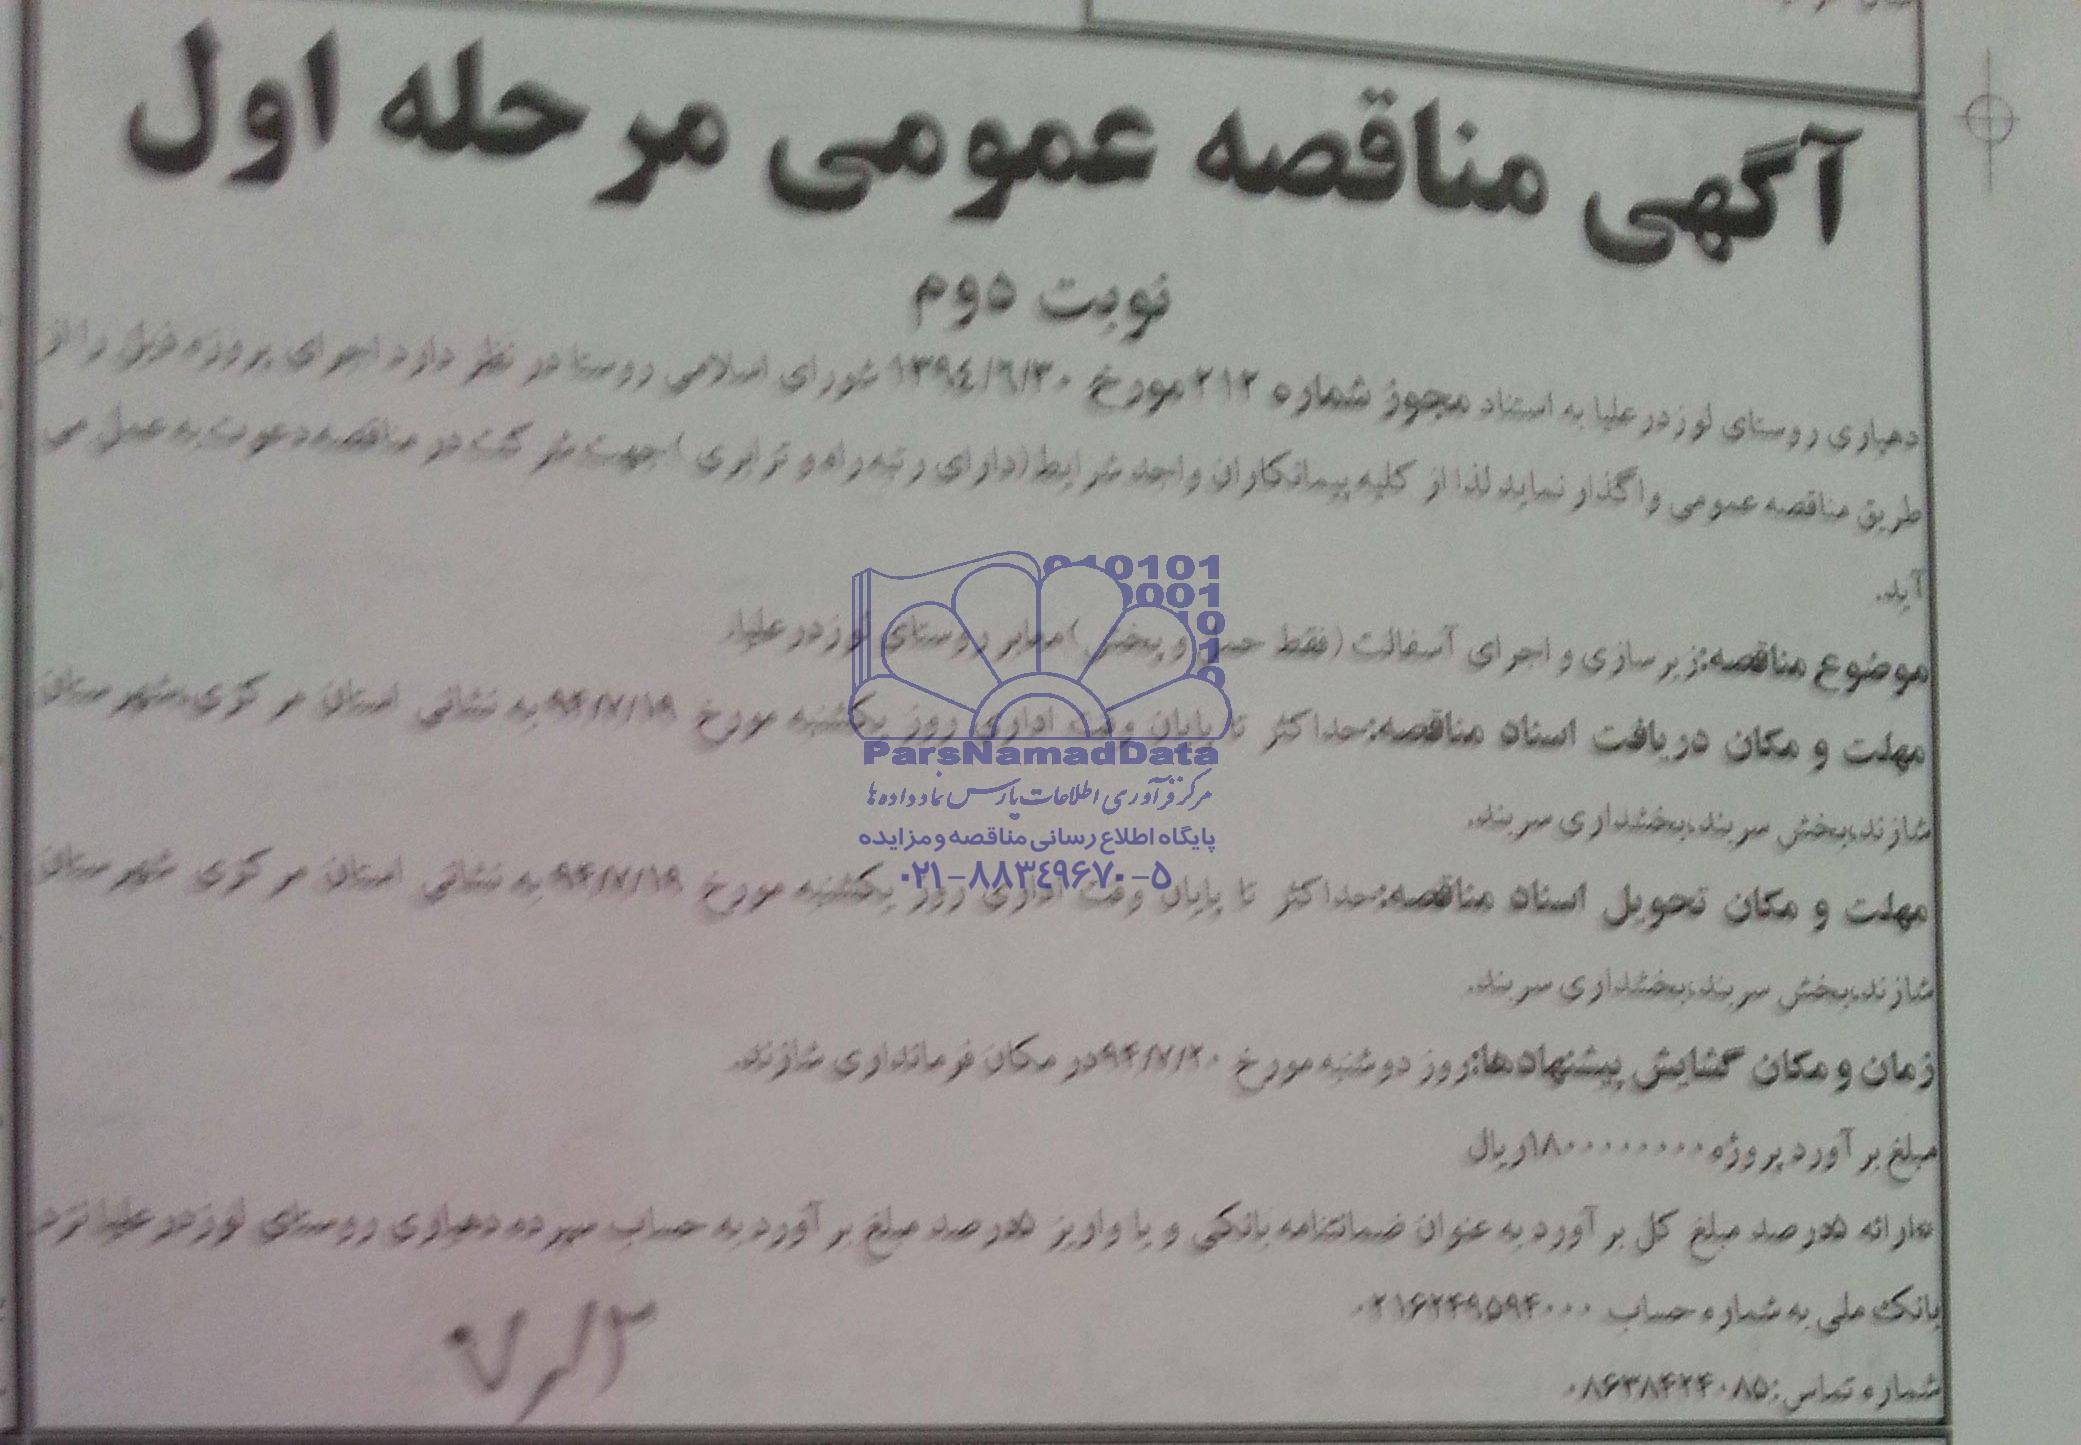 آگهی مناقصه عمومی مرحله اول
نوبت دوم
دهیاری روستای لوزدر علیا به استناد مجوز شماره ۲۱۲ مورخ ۱۳۹٤/٦/۳۰ شورای اسلامی روستا در نظر دارد اجرای پروزه ذیل را از
طریق مناقصه عمومی واگذار نماید لذا از کلیه پیمانکاران واجد شرایط (دارای رتبه راه و ترابری) جهت شرکت در مناقصه دعوت به عمل می
آید.
موضوع مناقصه: زیرسازی و اجرای آسفالت (فقط حمل و پخش) معابر روستای لوزدر علیا.
مهلت و مکان دریافت اسناد مناقصه: حداکثر تا پایان وقت اداری روز یکشنبه مورخ ۹۴/۷/۱۹ به نشانی استان مرکزی، شهرستان
شازند، بخش سربند، بخشداری سربند.
مهلت و مکان تحویل اسناد مناقصه: حداکثر تا پایان وقت اداری روز یکشنبه مورخ ۹۴/۷/۱۹ به نشانی استان مرکزی شهرستان
شازند، بخش سربند، بخشداری سربند.
زمان و مکان گشایش پیشنهادها: روز دوشنبه مورخ ۹۴/۷/۲۰ در مکان فرمانداری شازند.
مبلغ برآورد پروژه ۱۸۰۰۰۰۰۰۰۰ ریال
*ارائه ۵درصد مبلغ کل برآورد به عنوان ضمانتنامه بانکی و یا واریز ۵درصد مبلغ برآورد به حساب سپرده دهیاری روستای لوزدر علیا نزد
بانک ملی به شماره حساب ۰۲۱۶۲۴۹۵۹۴۰۰۰
شماره تماس: ۰۸۶۳۸۴۲۴۰۸۵
010101
0001
10
1
0
ParsNamadData
مرکز فرآوری اطلاعات پارس نماد داده ها
پایگاه اطلاع رسانی مناقصه و مزایده
۰۲۱-۸۸۳۴۹۶۷۰-۵